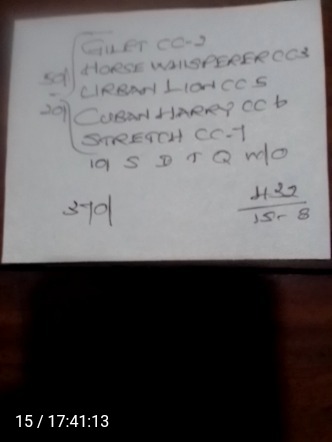 GILET CC-2
50| HORSE WHISPERER CC3
URBAN LION CC5
20| CUBAN HARRY CC6
STRETCH CC-7
10| S D T Q W/O
370|
432
15-8
15 / 17:41:13